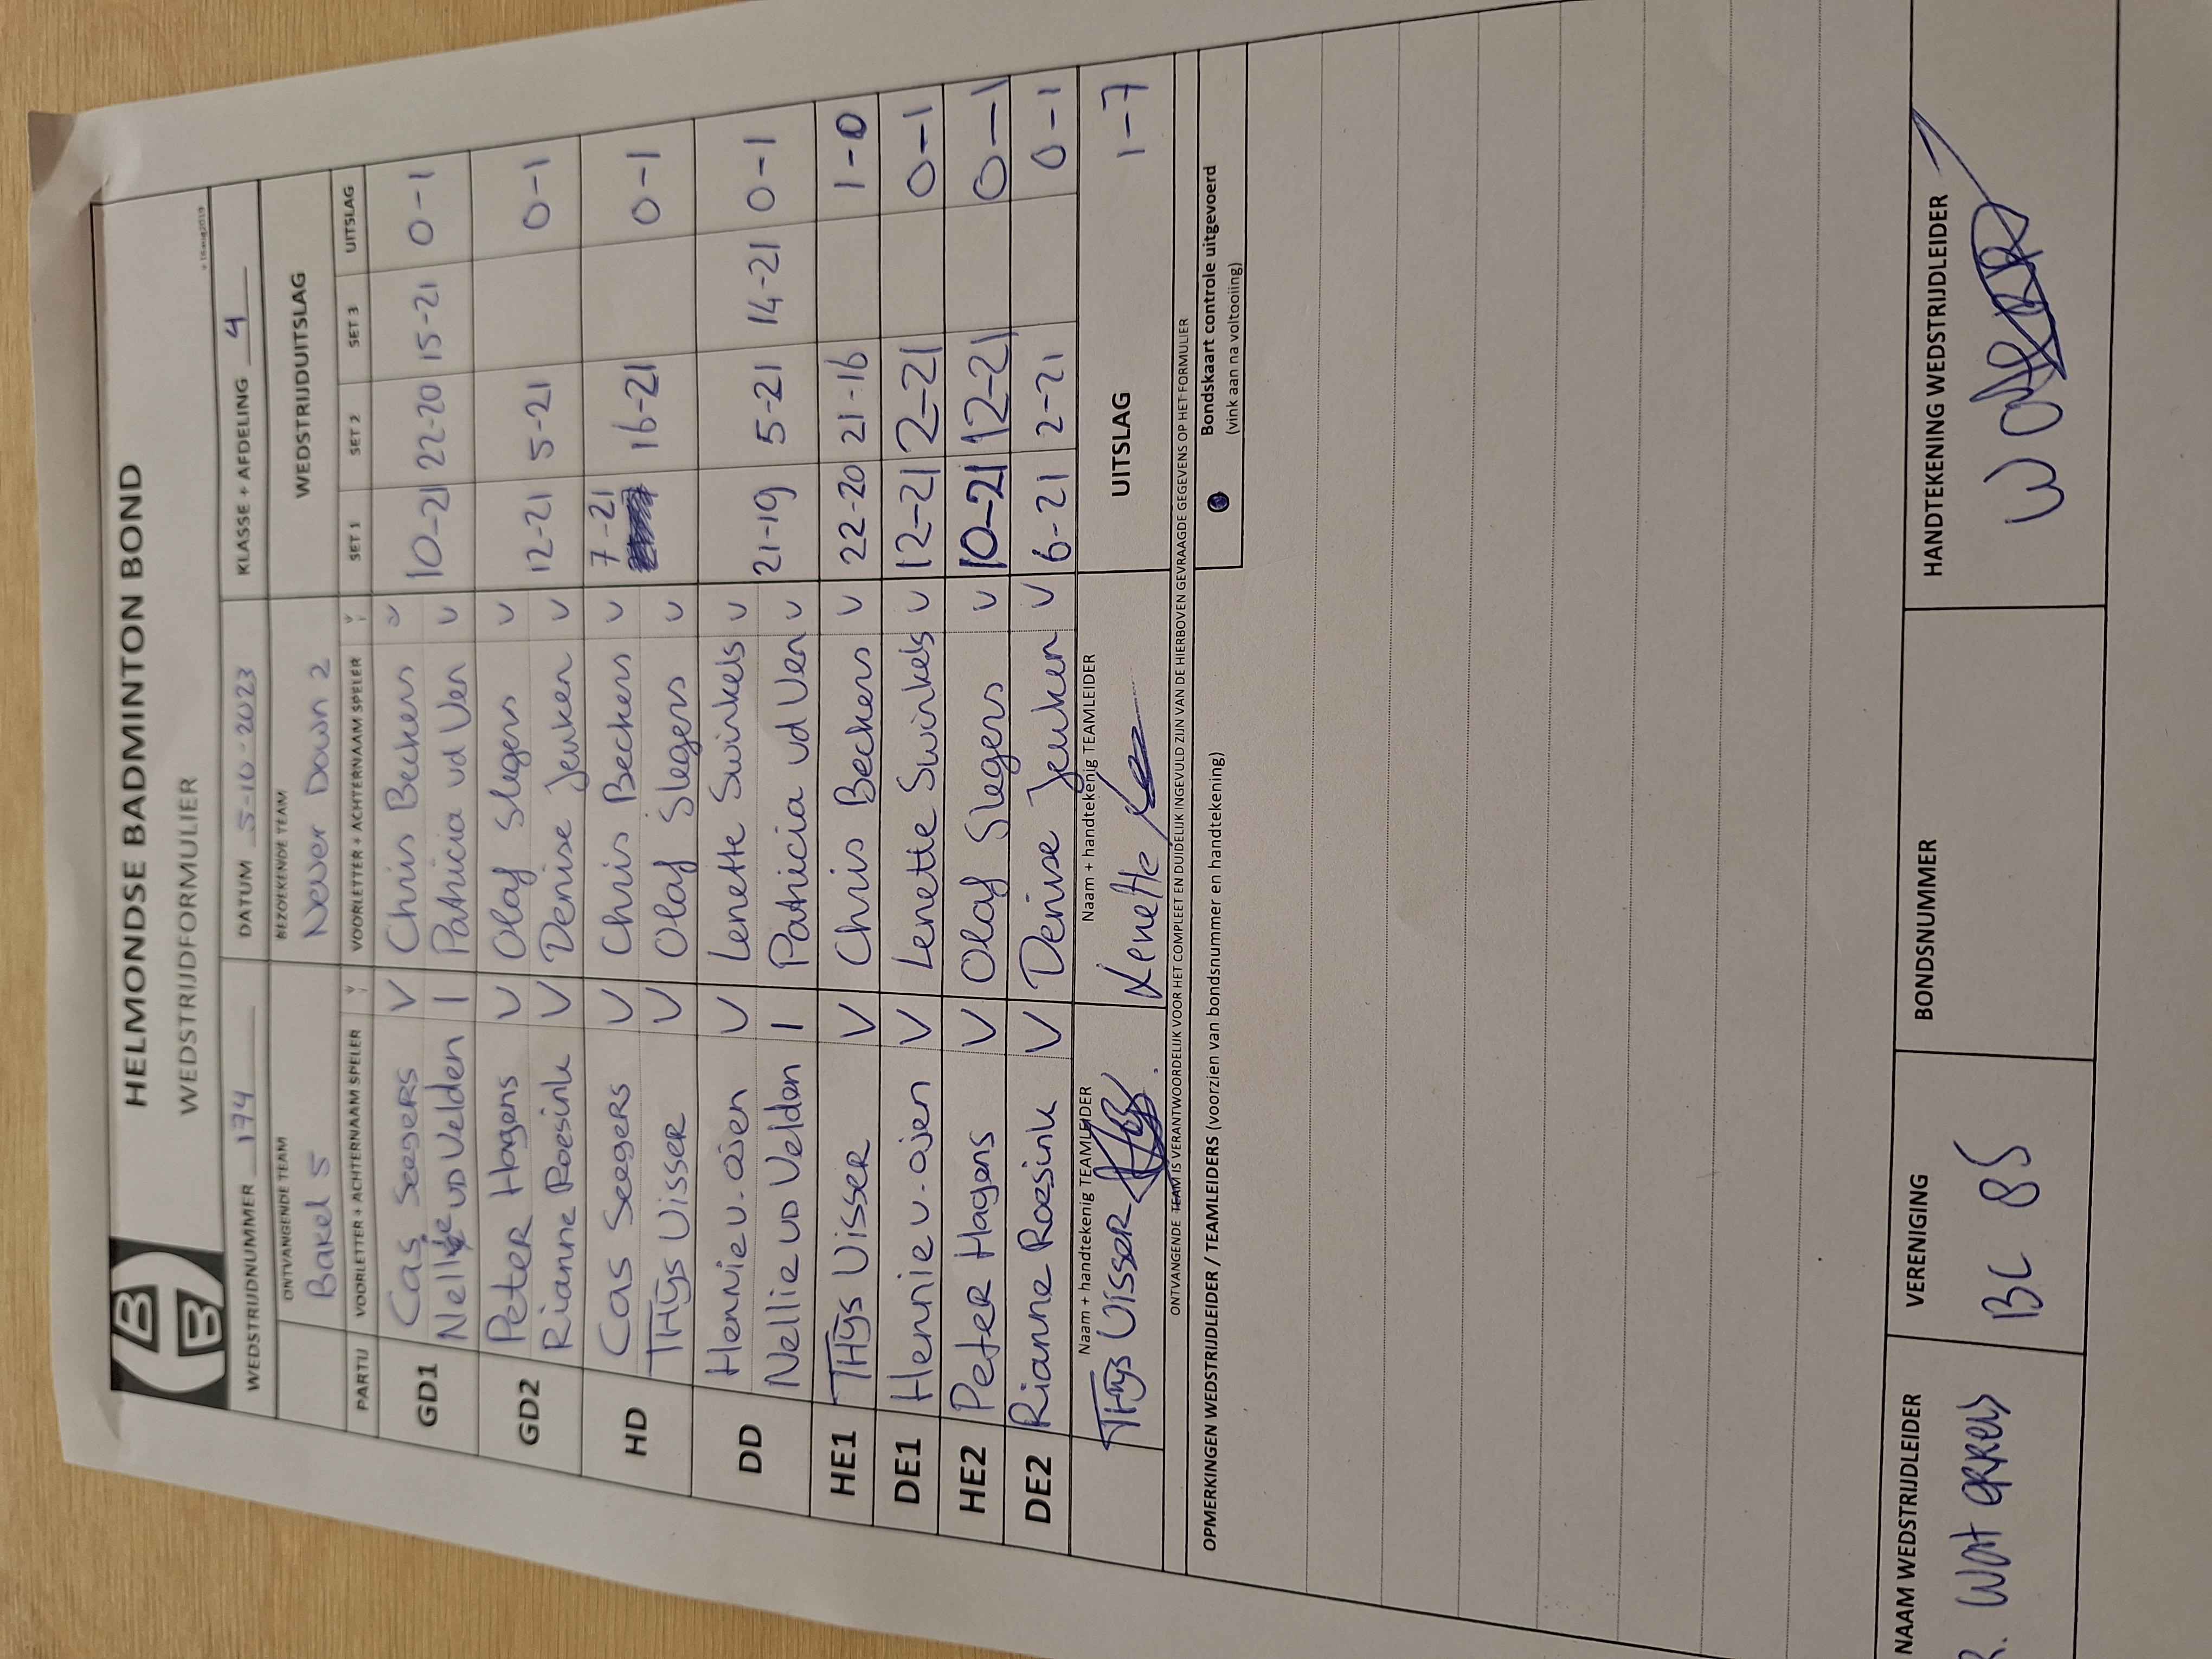 HELMONDSE BADMINTON BOND
WEDSTRIJDFORMULIER
v 16aug2019
WEDSTRIJDNUMMER 174 DATUM 5-10-2023 KLASSE + AFDELING 4
ONTVANGENDE TEAM BEZOEKENDE TEAM WEDSTRIJDUITSLAG
Bakel 5 Never Down 2
PARTIJ VOORLETTER + ACHTERNAAM SPELER V VOORLETTER + ACHTERNAAM SPELER V SET 1 SET 2 SET 3 UITSLAG
GD1 Cas Seegers V Chris Beckers V 10-21 22-20 15-21 0-1
Nellie vd Velden I Patricia vd Ven V
GD2 Peter Hagens V Olaf Slegers V 12-21 5-21 0-1
Rianne Roesink V Denise Jeuken V
HD Cas Seegers V Chris Beckers V 7-21 16-21 0-1
THijs Visser V Olaf Slegers V
DD Hennie v. Oijen V Lenette Swinkels V 21-19 5-21 14-21 0-1
Nellie vd Velden I Patricia vd Ven V
HE1 THijs Visser V Chris Beckers V 22-20 21-16 1-0
DE1 Hennie v. Oijen V Lenette Swinkels V 12-21 12-21 0-1
HE2 Peter Hagens V Olaf Slegers V 10-21 12-21 0-1
DE2 Rianne Roesink V Denise Jeuken V 6-21 2-21 0-1
Naam + handtekenig TEAMLEIDER Naam + handtekenig TEAMLEIDER UITSLAG 1-7
THijs Visser Lenette
ONTVANGENDE TEAM IS VERANTWOORDELIJK VOOR HET COMPLEET EN DUIDELIJK INGEVULD ZIJN VAN DE HIERBOVEN GEVRAAGDE GEGEVENS OP HET FORMULIER
OPMERKINGEN WEDSTRIJDLEIDER / TEAMLEIDERS (voorzien van bondsnummer en handtekening)
Bondskaart controle uitgevoerd
(vink aan na voltooiing)
NAAM WEDSTRIJDLEIDER VERENIGING BONDSNUMMER HANDTEKENING WEDSTRIJDLEIDER
BC 85